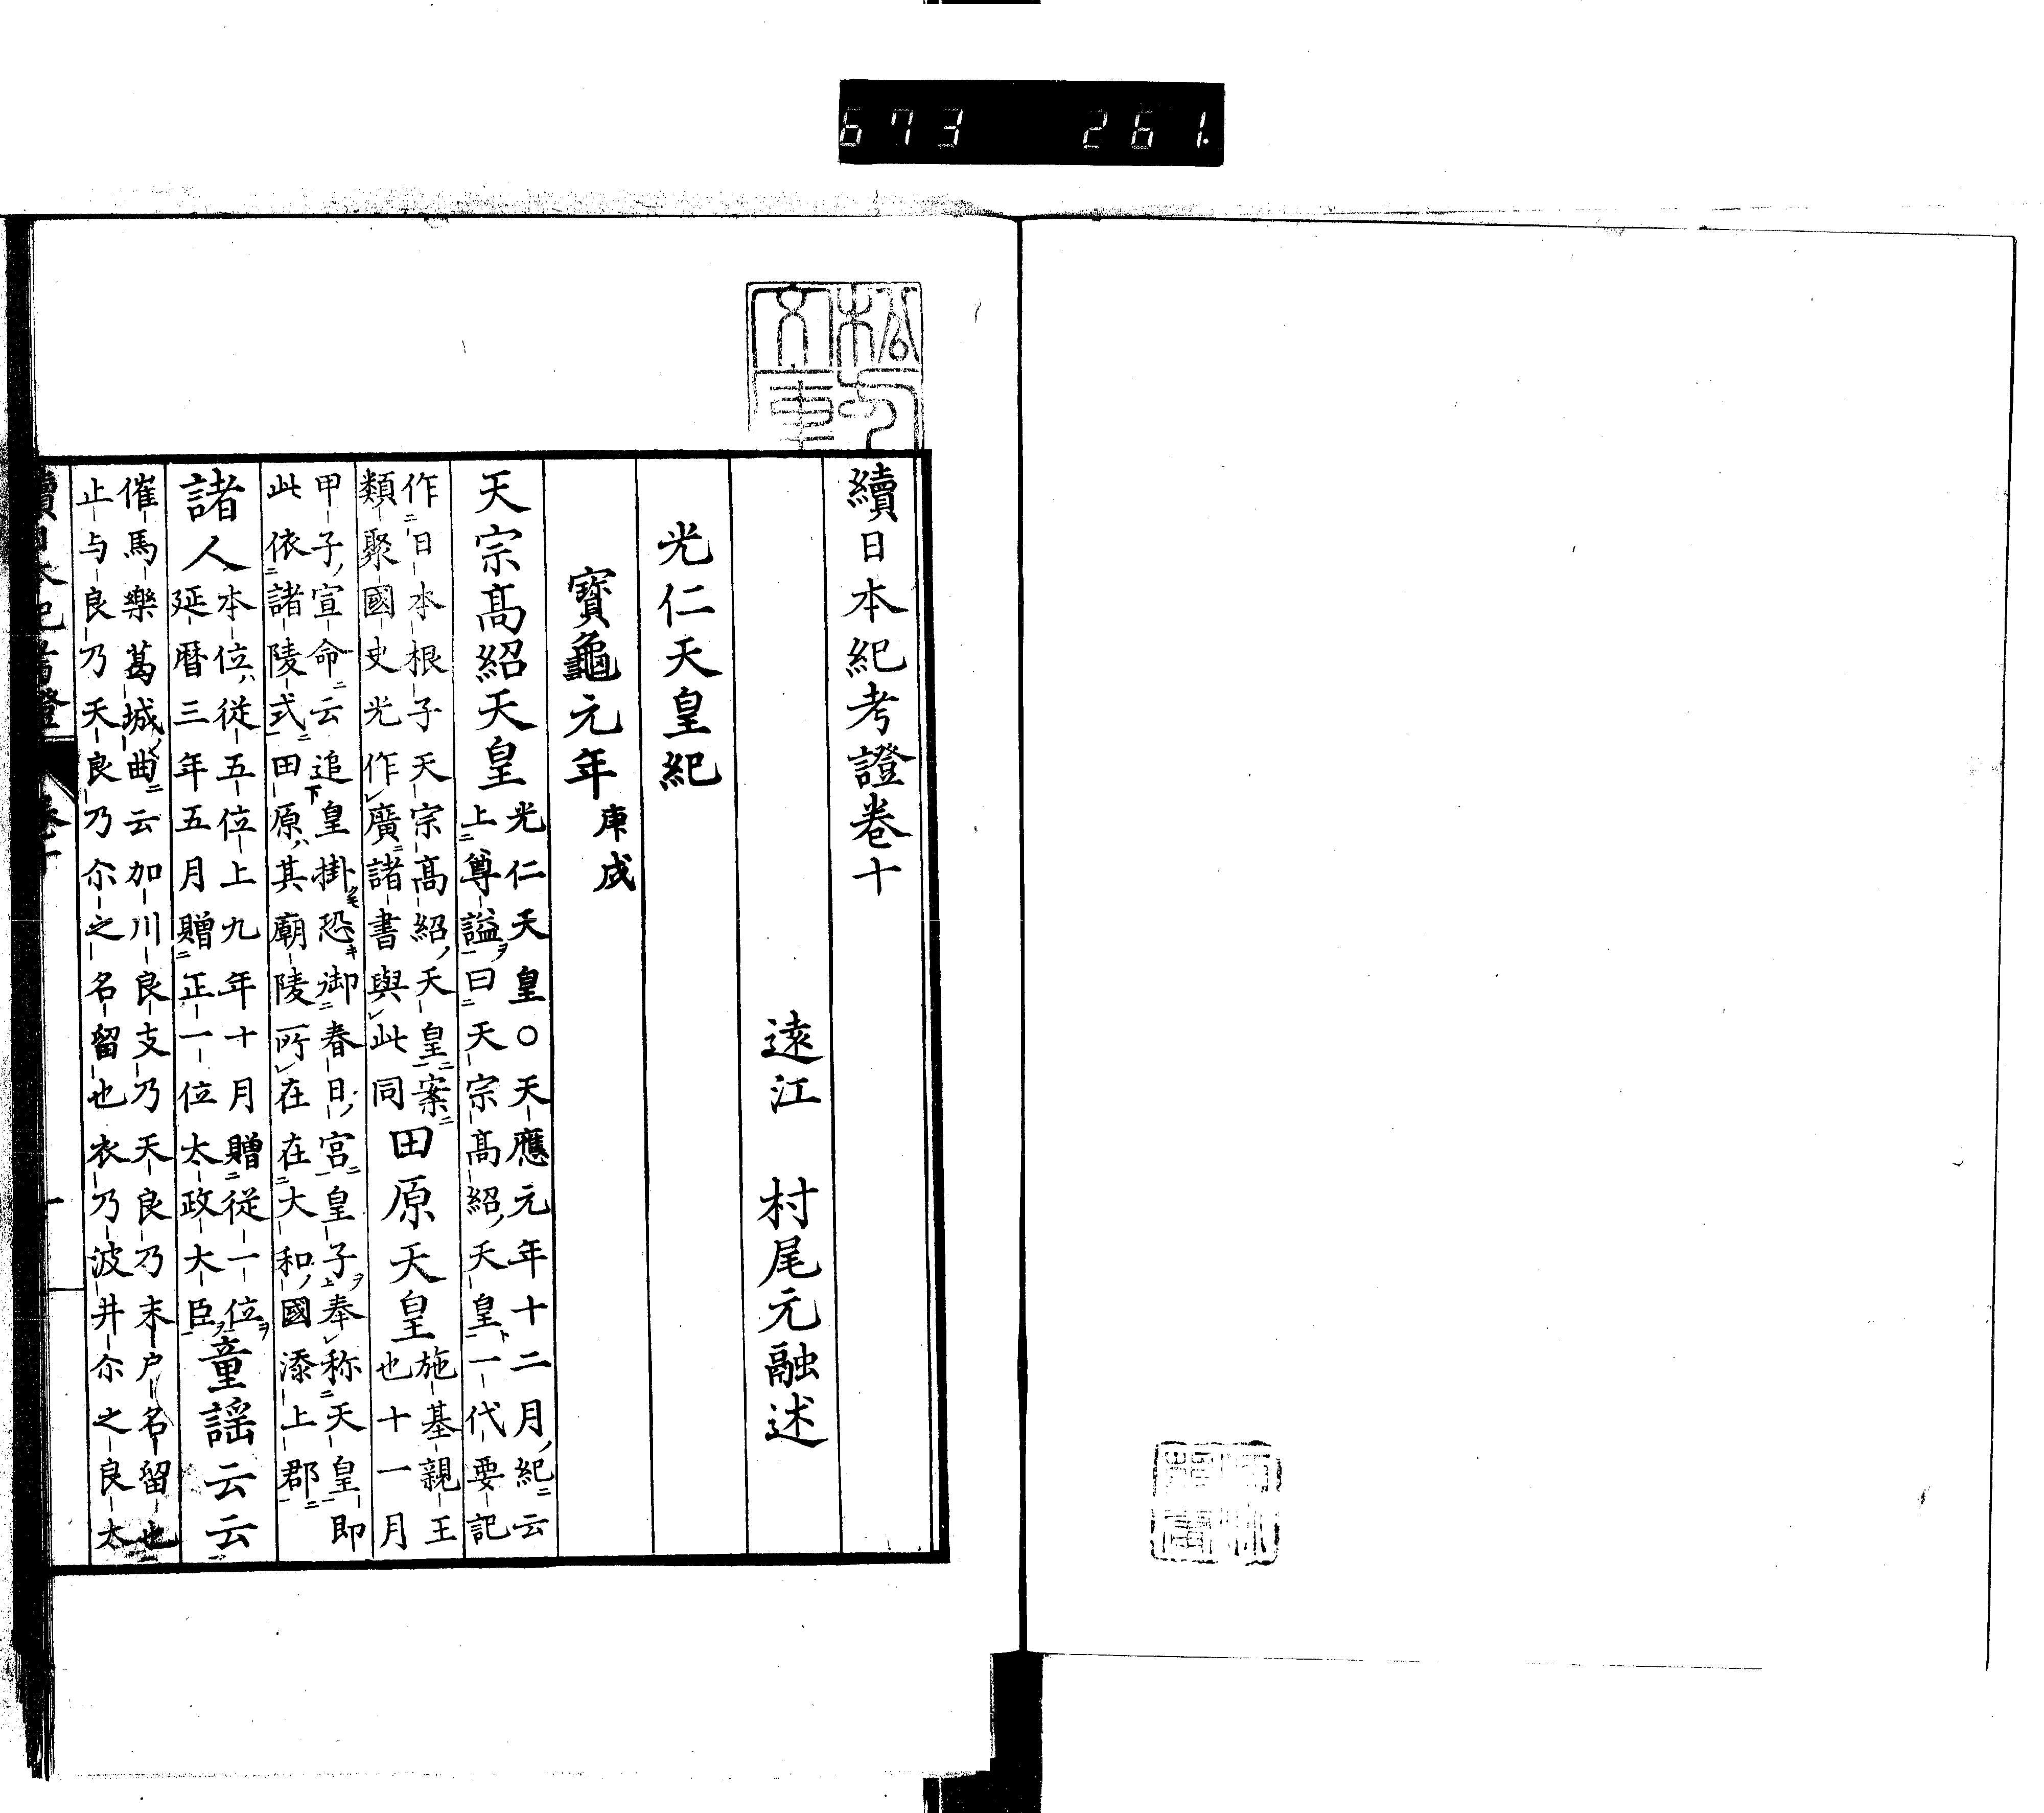 673 261.
松岡文庫
續日本紀考證卷十
遠江 村尾元融述
光仁天皇紀
寳龜元年庚戌
天宗髙紹天皇光仁天皇○天應元年十二月紀云
上尊謚曰天宗髙紹天皇一代要記
作日本根子天宗髙紹天皇案
類聚國史光作廣諸書與此同田原天皇施基親王
也十一月
甲子宣命云追皇掛恐御春日宮皇子奉称天皇即
此依諸陵式田原其廟陵所在在大和國添上郡
諸人本位從五位上九年十月贈從一位
延暦三年五月贈正一位太政大臣童謡云云
催馬樂葛城曲云加川良支乃天良乃末户名留也
止与良乃天良乃尒之名留也衣乃波井尒之良太